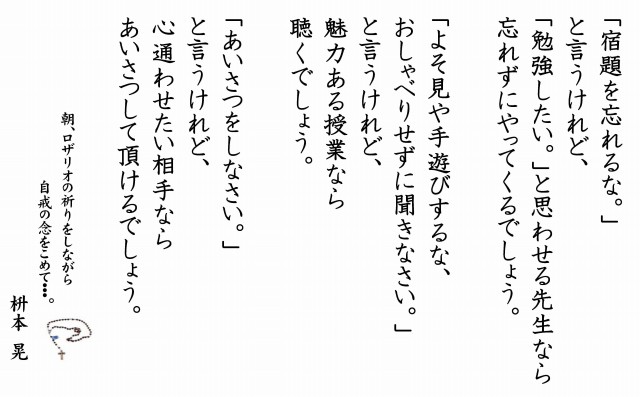 「宿題を忘れるな。」
と言うけれど、
「勉強したい。」と思わせる先生なら
忘れずにやってくるでしょう。
「よそ見や手遊びするな、
おしゃべりせずに聞きなさい。」
と言うけれど、
魅力ある授業なら
聴くでしょう。
「あいさつをしなさい。」
と言うけれど、
心通わせたい相手なら
あいさつして頂けるでしょう。
朝、ロザリオの祈りをしながら
自戒の念をこめて…。
枡本 晃